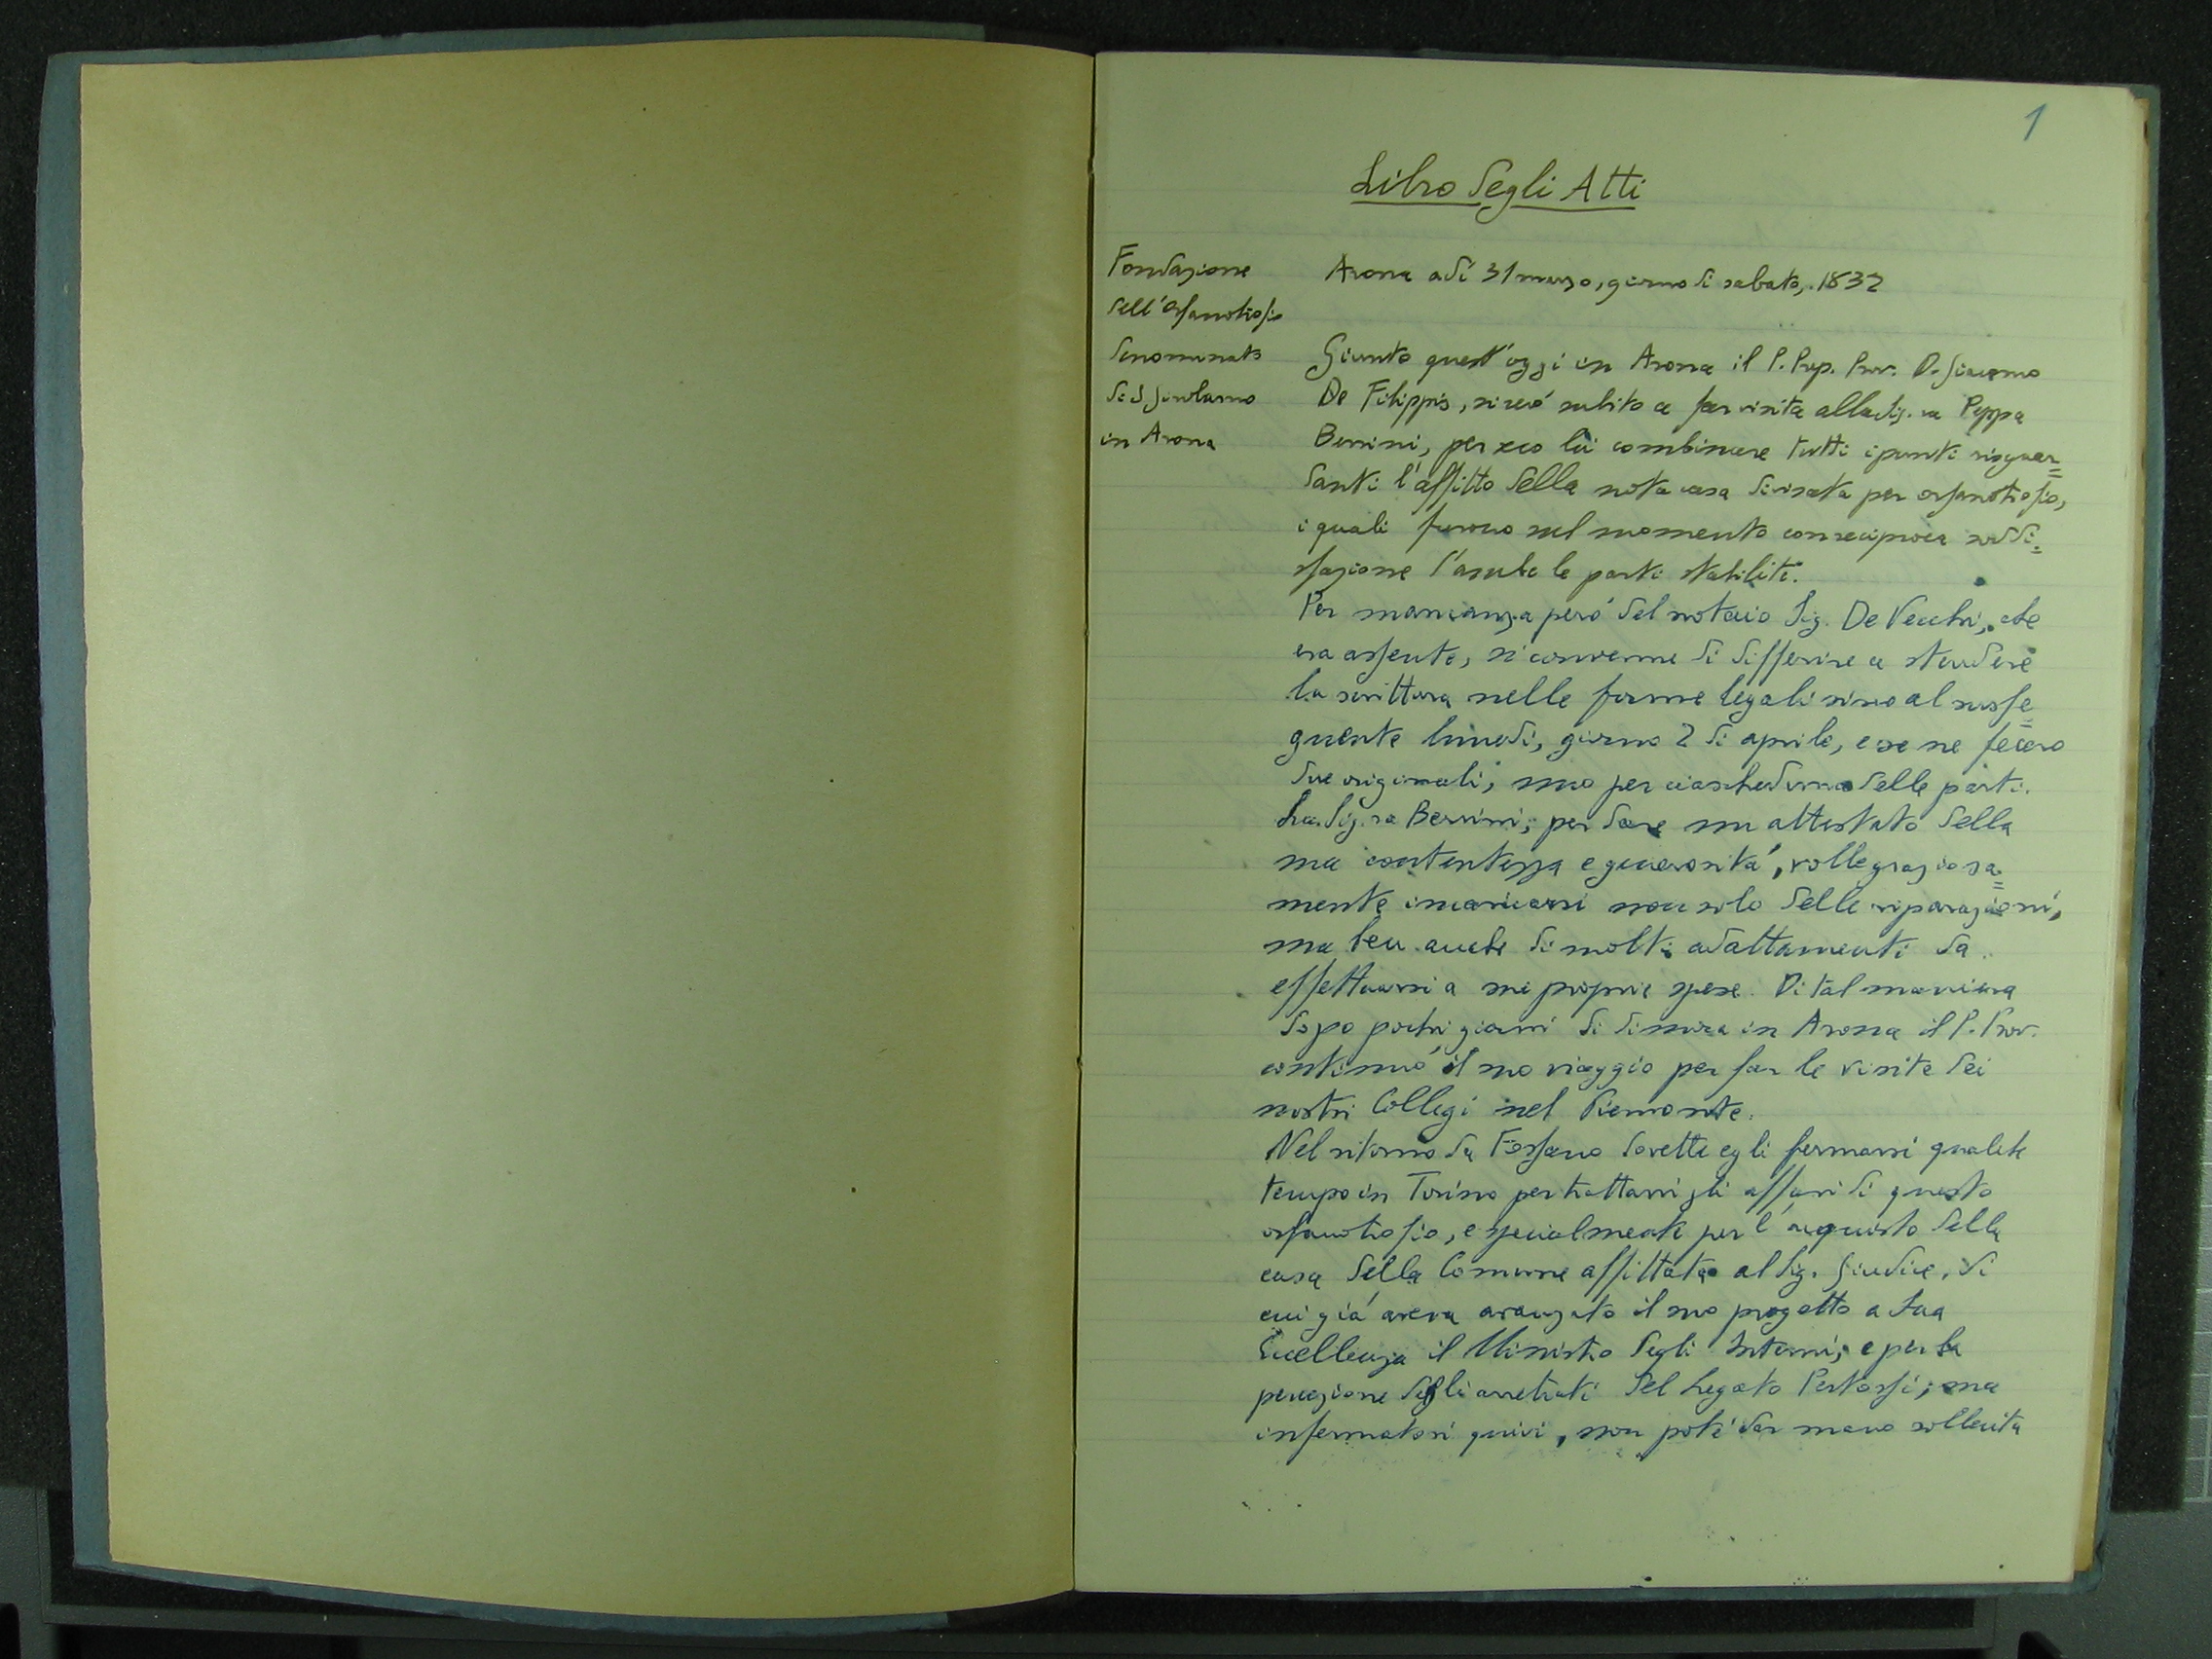 1
Libro degli Atti
Fondazione
dell'Orfanotrofio
denominato
di S. Girolamo
in Arona
Arona adì 31 marzo, giorno di sabato, 1832
Giunto quest'oggi in Arona il P. Prep. Prov. D. Giacomo
De Filippis, si recò subito a far visita alla Sig.ra Peppa
Berrini, per seco lei combinare tutti i punti riguar=
danti l'affitto della nota casa divisata per orfanotrofio,
i quali furono sul momento con reciproca soddi=
sfazione d'ambe le parti stabiliti.
Per mancanza però del notaio Sig. De Vecchi, che
era assente, si convenne di differire a stendere
la scrittura nelle forme legali sino al susse=
guente lunedì, giorno 2 di aprile, e se ne fecero
due originali, uno per ciascheduna delle parti.
La Sig.ra Berrini, per dare un attestato della
sua contentezza e generosità, volle graziosa=
mente incaricarsi non solo delle riparazioni,
ma ben anche di molti adattamenti da
effettuarsi a sue proprie spese. Di tal maniera
dopo pochi giorni di dimora in Arona il P. Prov.
continuò il suo viaggio per far le visite dei
nostri Collegi nel Piemonte.
Nel ritorno da Fossano dovette egli fermarsi qualche
tempo in Torino per trattarvi gli affari di questo
orfanotrofio, e specialmente per l'acquisto della
casa della Comune affittata al Sig. Giudice, di
cui già aveva avanzato il suo progetto a Sua
Eccellenza il Ministro degli Interni; e per la
percezione degli arretrati del Legato Pertossi; ma
infermatosi quivi, non poté dar mano sollecita